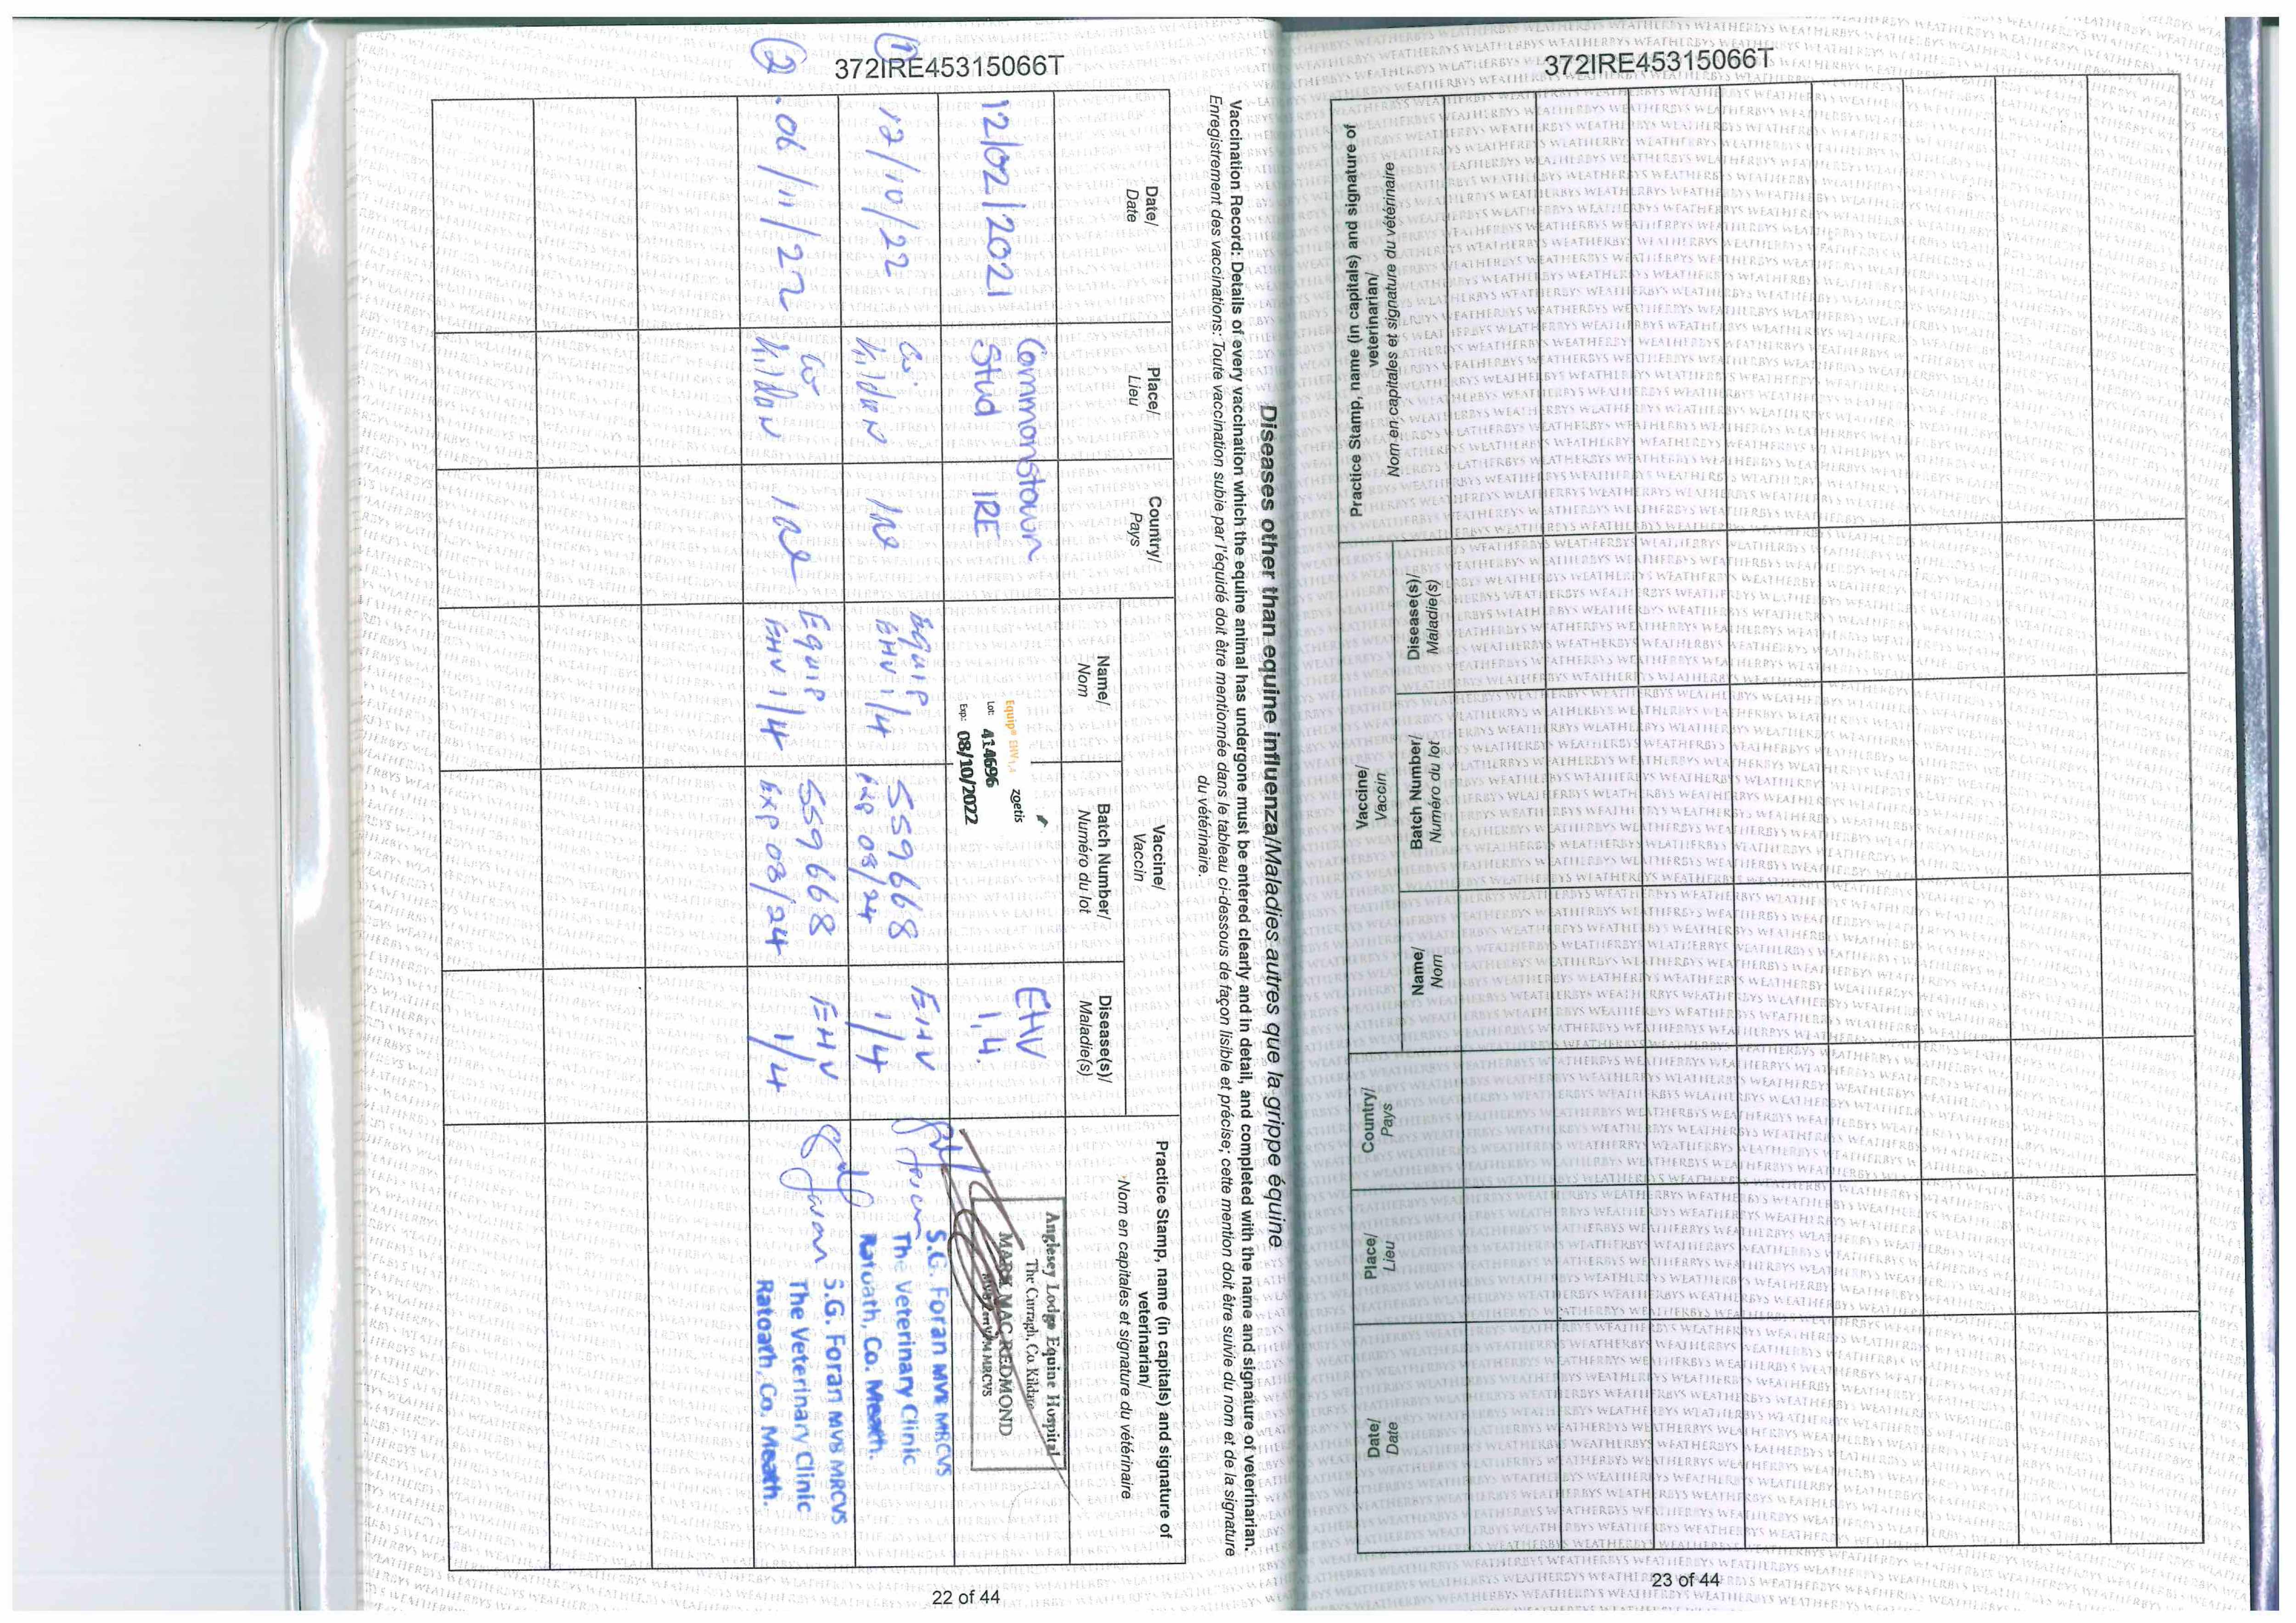 372IRE45315066T
Diseases other than equine influenza/Maladies autres que la grippe équine
Vaccination Record: Details of every vaccination which the equine animal has undergone must be entered clearly and in detail, and completed with the name and signature of veterinarian.
Enregistrement des vaccinations: Toute vaccination subie par l'équidé doit être mentionnée dans le tableau ci-dessous de façon lisible et précise; cette mention doit être suivie du nom et de la signature
du vétérinaire.
Date/
Date
Place/
Lieu
Country/
Pays
Vaccine/
Vaccin
Name/
Nom
Batch Number/
Numéro du lot
Disease(s)/
Maladie(s)
Practice Stamp, name (in capitals) and signature of
veterinarian/
Nom en capitales et signature du vétérinaire
12/02/2021
Commonstown
Stud
IRE
Equip® EHV1,4
zoetis
Lot: 414696
Exp: 08/10/2022
EHV
1,4.
Anglesey Lodge Equine Hospital
The Curragh, Co. Kildare
MARK MAC REDMOND
MRCVS
①
12/10/22
Co.
Kildare
IRE
Equip
EHV 1/4
559668
exp 03/24
EHV
1/4
S.G. Foran MVB MRCVS
The Veterinary Clinic
Ratoath, Co. Meath.
②
06/11/22
Co
Kildare
IRE
Equip
EHV 1/4
559668
Exp 03/24
EHV
1/4
S.G. Foran MVB MRCVS
The Veterinary Clinic
Ratoath, Co. Meath.
22 of 44
372IRE45315066T
Practice Stamp, name (in capitals) and signature of
veterinarian/
Nom en capitales et signature du vétérinaire
Vaccine/
Vaccin
Disease(s)/
Maladie(s)
Batch Number/
Numéro du lot
Name/
Nom
Country/
Pays
Place/
Lieu
Date/
Date
23 of 44